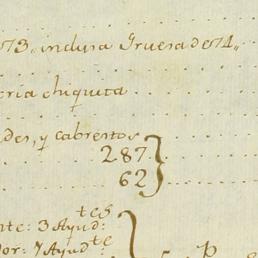 73,, inclusa Gruesa de 74,,
cria chiquita
des, y cabrestos
287
62
tes
nte: 3 Ayud:
te
dor: 7 Ayud: